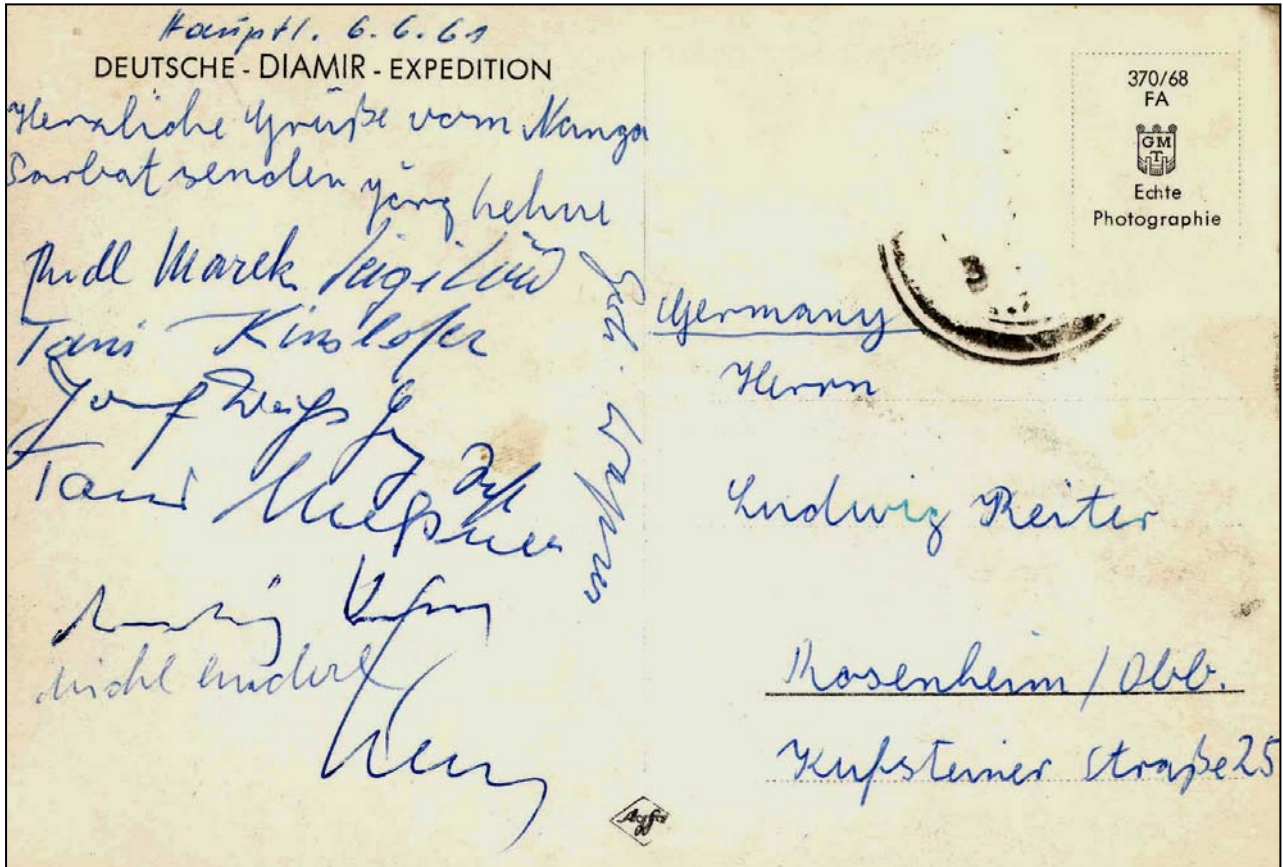 Hauptl. 6.6.61
DEUTSCHE-DIAMIR-EXPEDITION
Herzliche Grüße vom Nanga
Parbat senden Jörg Lehne
Rudl Marek Sigi Löw
Toni Kinshofer
Toni Meßner
Michl Anderl
370/68
FA
GM
T
Echte
Photographie
3
Germany
Herrn
Ludwig Reiter
Rosenheim/Obb.
Kufsteiner Straße 25
Agfa